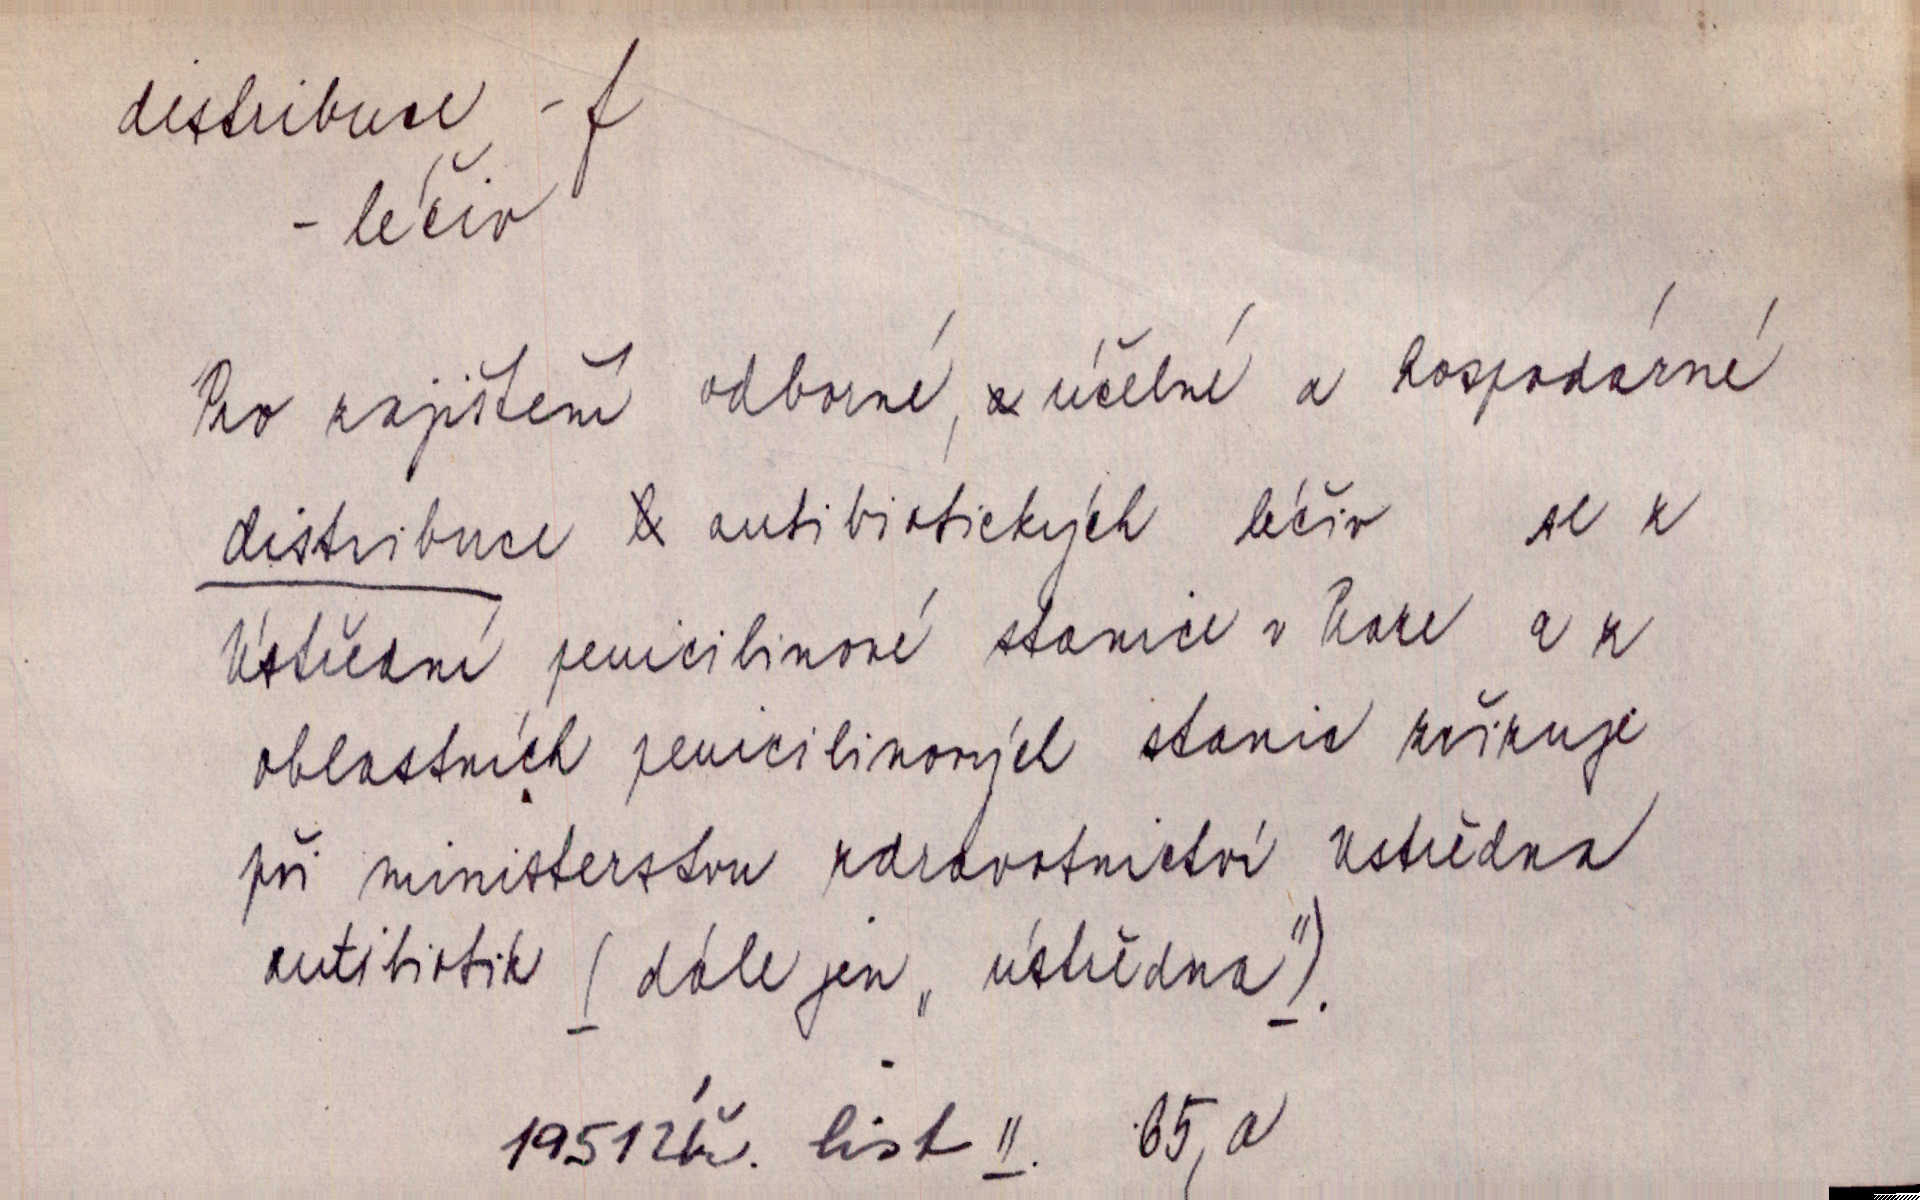 distribuce - f
- léčiv
Pro zajištění odborné, účelné a hospodárné
distribuce antibiotických léčiv se z
Ústřední penicilinové stanice v Praze a z
oblastních penicilinových stanic zřizuje
při ministerstvu zdravotnictví Ustředna
antibiotik (dále jen „ústředna").
1951 Úř. list II. 65, a